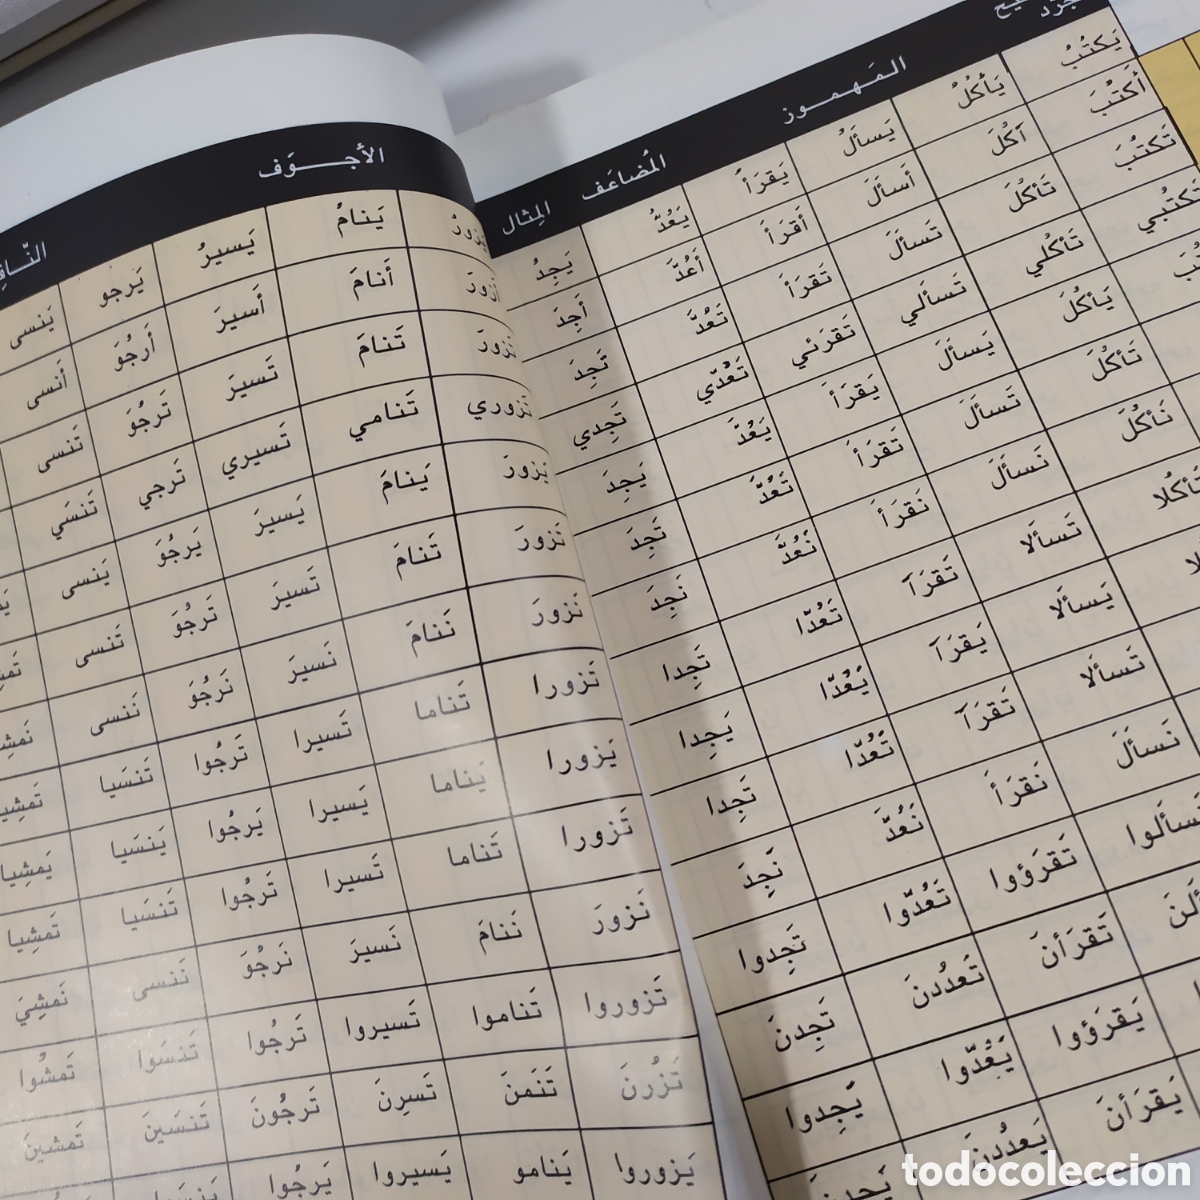 المَهموز
المُضاعَف
المِثال
يَكتُبُ يَأكُلُ يَسأَلُ يَقرَأُ يَعُدُّ يَجِدُ
أَكتُبَ آكُلَ أَسأَلَ أَقرَأَ أَعُدَّ أَجِدَ
تَكتُبَ تَأكُلَ تَسأَلَ تَقرَأَ تَعُدَّ تَجِدَ
تَكتُبي تَأكُلي تَسأَلي تَقرَئي تَعُدّي تَجِدي
يَأكُلَ يَسأَلَ يَقرَأَ يَعُدَّ يَجِدَ
تَأكُلَ تَسأَلَ تَقرَأَ تَعُدَّ تَجِدَ
نَأكُلَ نَسأَلَ نَقرَأَ نَعُدَّ نَجِدَ
تَأكُلا تَسأَلا تَقرَآ تَعُدّا تَجِدا
يَسأَلا يَقرَآ يَعُدّا يَجِدا
تَسأَلا تَقرَآ تَعُدّا تَجِدا
نَسأَلَ نَقرَأَ نَعُدَّ نَجِدَ
تَسأَلوا تَقرَؤوا تَعُدّوا تَجِدوا
تَقرَأنَ تَعدُدنَ تَجِدنَ
يَقرَؤوا يَعُدّوا يَجِدوا
يَقرَأنَ يَعدُدنَ يَجِدنَ
الأَجـوَف
يَزورُ يَنامُ يَسيرُ يَرجو يَنسى
أَزورَ أَنامَ أَسيرَ أَرجُوَ أَنسى
تَزورَ تَنامَ تَسيرَ تَرجُوَ تَنسى
تَزوري تَنامي تَسيري تَرجي تَنسَي
يَزورَ يَنامَ يَسيرَ يَرجُوَ يَنسى
تَزورَ تَنامَ تَسيرَ تَرجُوَ تَنسى
نَزورَ نَنامَ نَسيرَ نَرجُوَ نَنسى
تَزورا تَناما تَسيرا تَرجُوا تَنسَيا تَمشِيا
يَزورا يَناما يَسيرا يَرجُوا يَنسَيا يَمشِيا
تَزورا تَناما تَسيرا تَرجُوا تَنسَيا تَمشِيا
نَزورَ نَنامَ نَسيرَ نَرجُوَ نَنسى نَمشِيَ
تَزوروا تَناموا تَسيروا تَرجُوا تَنسَوا تَمشُوا
تَزُرنَ تَنَمنَ تَسِرنَ تَرجُونَ تَنسَينَ تَمشينَ
يَزوروا يَنامو يَسيروا يَرجُوا
todocoleccion.net